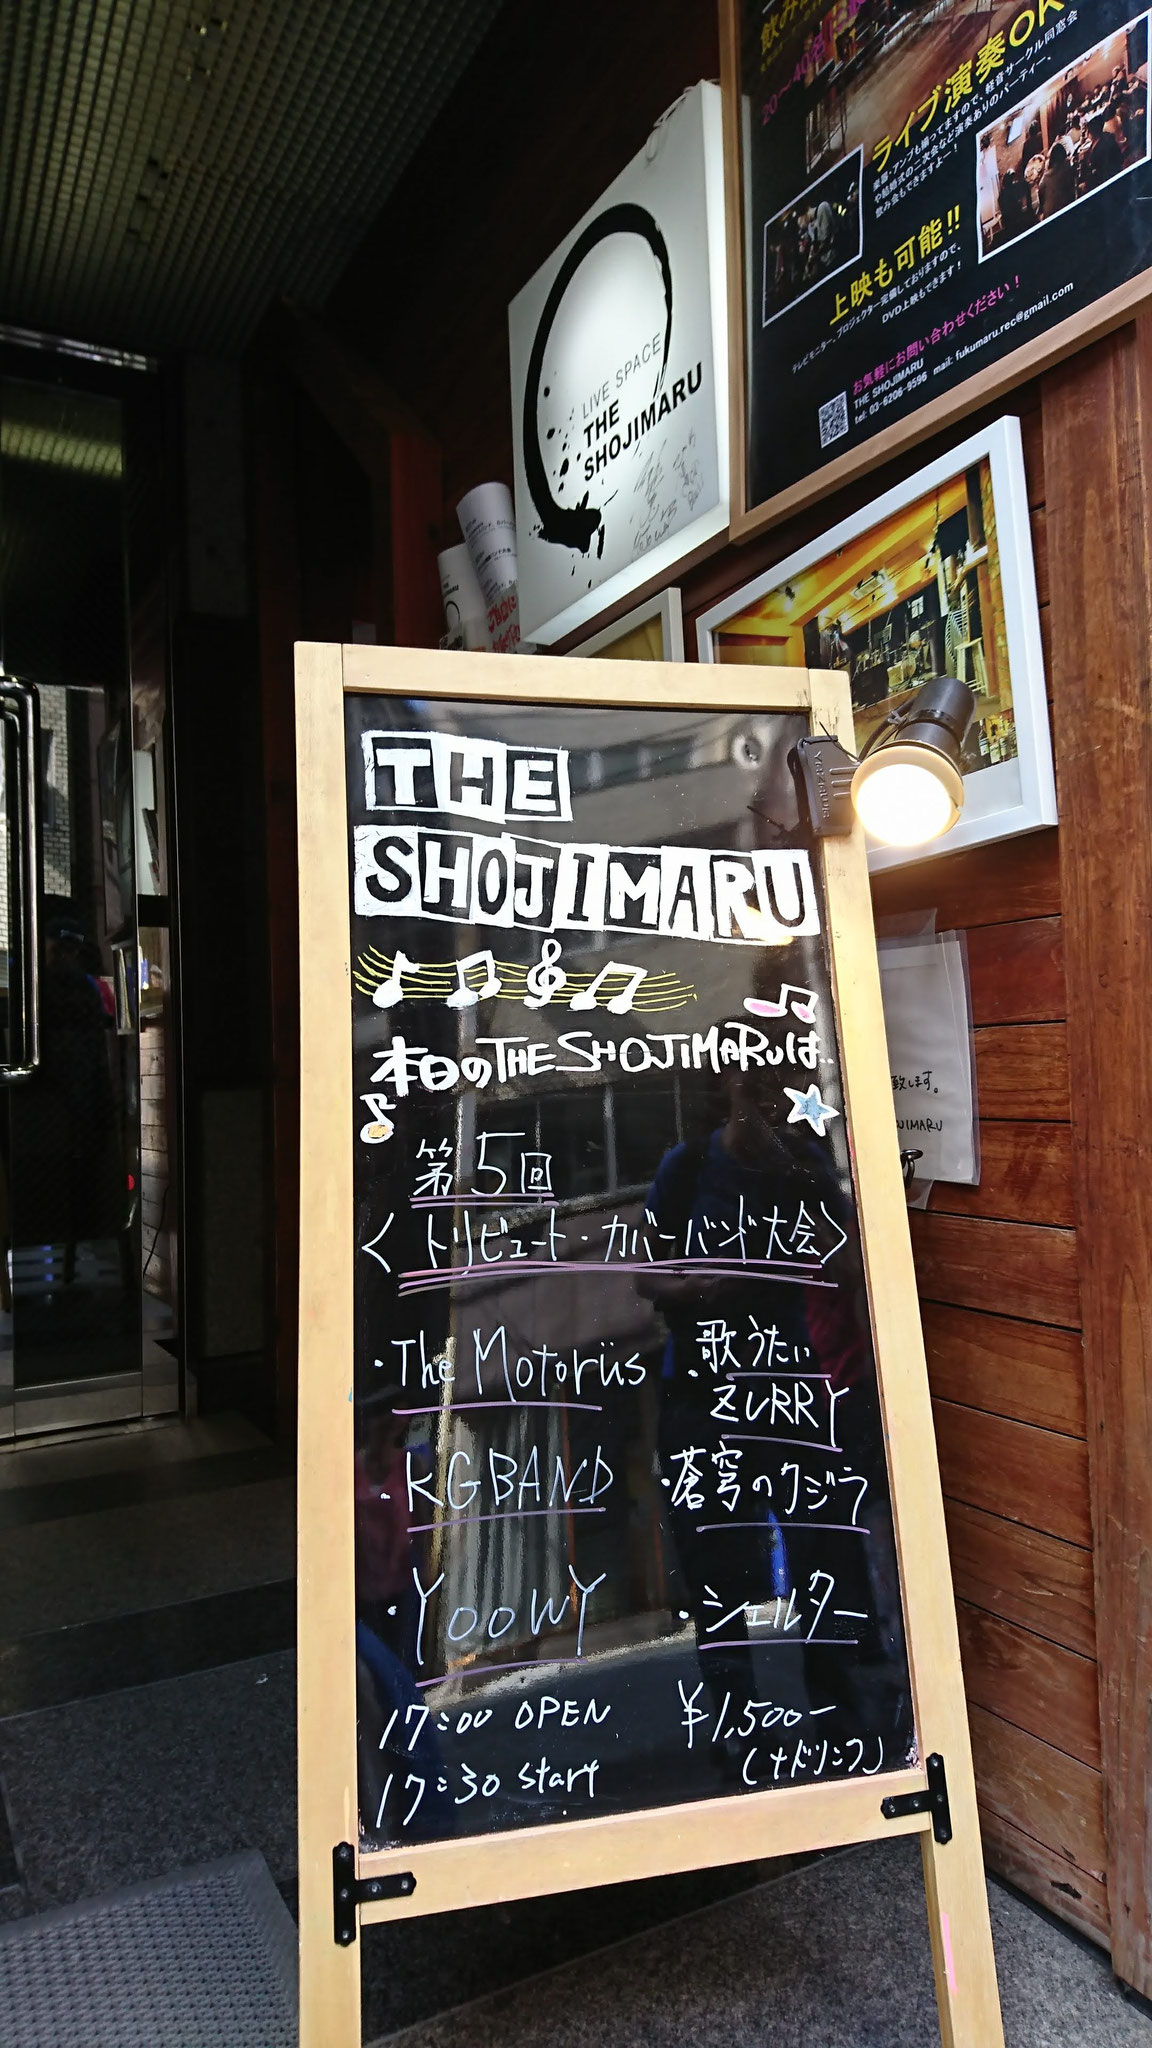 ライブ演奏OK
楽器・アンプも揃ってますので、軽音サークル同窓会
や結婚式の二次会など演奏ありのパーティー、
飲み会もできますよー！
上映も可能!!
テレビモニター、プロジェクター完備しておりますので、
DVD上映もできます！
お気軽にお問い合わせください！
THE SHOJIMARU
tel: 03-6206-9596 mail: fukumaru.rec@gmail.com
LIVE SPACE
THE
SHOJIMARU
THE
SHOJIMARU
本日のTHE SHOJIMARUは..
第5回
〈トリビュート・カバーバンド大会〉
・The Motorüs
・歌うたい
ZURRY
・KGBAND
・蒼穹のクジラ
・YOOWY
・シェルター
17:00 OPEN
17:30 start
¥1,500-
(+ドリンク)
致します。